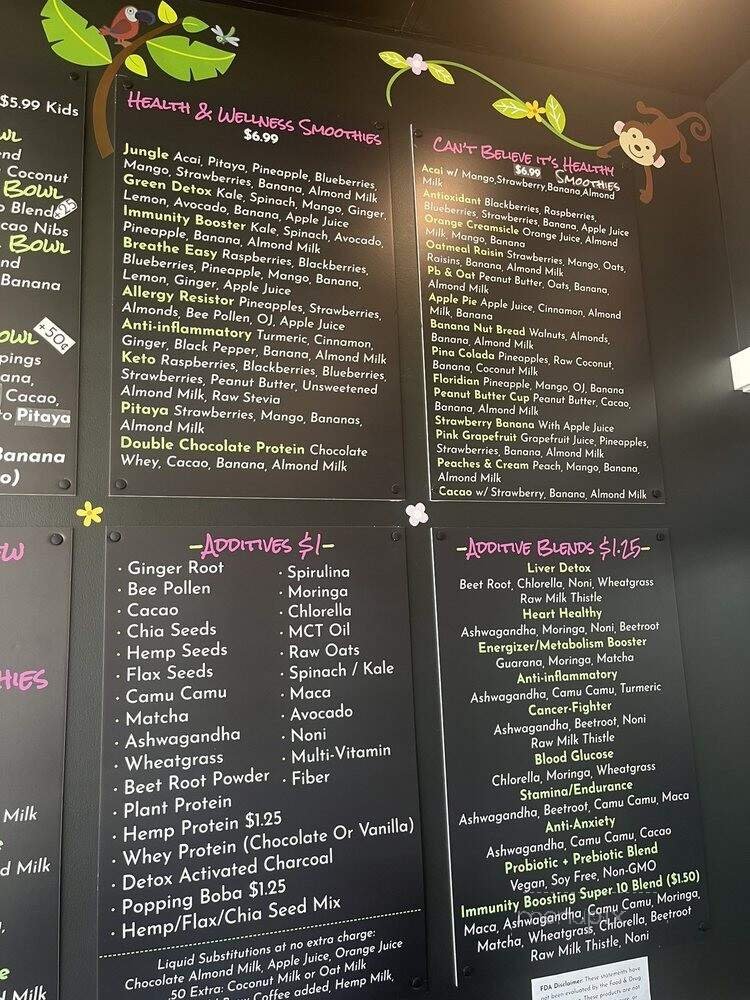 $5.99 Kids
Coconut
Bowl
Blend
cao Nibs
Bowl
Banana
+50¢
pings
ana,
Cacao,
to Pitaya
Banana
Milk
d Milk
Milk
Health & Wellness Smoothies
$6.99
Jungle Acai, Pitaya, Pineapple, Blueberries,
Mango, Strawberries, Banana, Almond Milk
Green Detox Kale, Spinach, Mango, Ginger,
Lemon, Avocado, Banana, Apple Juice
Immunity Booster Kale, Spinach, Avocado,
Pineapple, Banana, Almond Milk
Breathe Easy Raspberries, Blackberries,
Blueberries, Pineapple, Mango, Banana,
Lemon, Ginger, Apple Juice
Allergy Resistor Pineapples, Strawberries,
Almonds, Bee Pollen, OJ, Apple Juice
Anti-inflammatory Turmeric, Cinnamon,
Ginger, Black Pepper, Banana, Almond Milk
Keto Raspberries, Blackberries, Blueberries,
Strawberries, Peanut Butter, Unsweetened
Almond Milk, Raw Stevia
Pitaya Strawberries, Mango, Bananas,
Almond Milk
Double Chocolate Protein Chocolate
Whey, Cacao, Banana, Almond Milk
Can't Believe it's Healthy
$6.99 Smoothies
Acai w/ Mango,Strawberry,Banana,Almond
Milk
Antioxidant Blackberries, Raspberries,
Blueberries, Strawberries, Banana, Apple Juice
Orange Creamsicle Orange Juice, Almond
Milk, Mango, Banana
Oatmeal Raisin Strawberries, Mango, Oats,
Raisins, Banana, Almond Milk
Pb & Oat Peanut Butter, Oats, Banana,
Almond Milk
Apple Pie Apple Juice, Cinnamon, Almond
Milk, Banana
Banana Nut Bread Walnuts, Almonds,
Banana, Almond Milk
Pina Colada Pineapples, Raw Coconut,
Banana, Coconut Milk
Floridian Pineapple, Mango, OJ, Banana
Peanut Butter Cup Peanut Butter, Cacao,
Banana, Almond Milk
Strawberry Banana With Apple Juice
Pink Grapefruit Grapefruit Juice, Pineapples,
Strawberries, Banana, Almond Milk
Peaches & Cream Peach, Mango, Banana,
Almond Milk
Cacao w/ Strawberry, Banana, Almond Milk
-Additives $1-
· Ginger Root
· Bee Pollen
· Cacao
· Chia Seeds
· Hemp Seeds
· Flax Seeds
· Camu Camu
· Matcha
· Ashwagandha
· Wheatgrass
· Beet Root Powder
· Plant Protein
· Hemp Protein $1.25
· Whey Protein (Chocolate Or Vanilla)
· Detox Activated Charcoal
· Popping Boba $1.25
· Hemp/Flax/Chia Seed Mix
· Spirulina
· Moringa
· Chlorella
· MCT Oil
· Raw Oats
· Spinach / Kale
· Maca
· Avocado
· Noni
· Multi-Vitamin
· Fiber
Liquid Substitutions at no extra charge:
Chocolate Almond Milk, Apple Juice, Orange Juice
.50 Extra: Coconut Milk or Oat Milk
Coffee added, Hemp Milk,
-Additive Blends $1.25-
Liver Detox
Beet Root, Chlorella, Noni, Wheatgrass
Raw Milk Thistle
Heart Healthy
Ashwagandha, Moringa, Noni, Beetroot
Energizer/Metabolism Booster
Guarana, Moringa, Matcha
Anti-inflammatory
Ashwagandha, Camu Camu, Turmeric
Cancer-Fighter
Ashwagandha, Beetroot, Noni
Raw Milk Thistle
Blood Glucose
Chlorella, Moringa, Wheatgrass
Stamina/Endurance
Ashwagandha, Beetroot, Camu Camu, Maca
Anti-Anxiety
Ashwagandha, Camu Camu, Cacao
Probiotic + Prebiotic Blend
Vegan, Soy Free, Non-GMO
Immunity Boosting Super 10 Blend ($1.50)
Maca, Ashwagandha, Camu Camu, Moringa,
Matcha, Wheatgrass, Chlorella, Beetroot
Raw Milk Thistle, Noni
FDA Disclaimer: These statements have
not been evaluated by the Food & Drug
These products are not